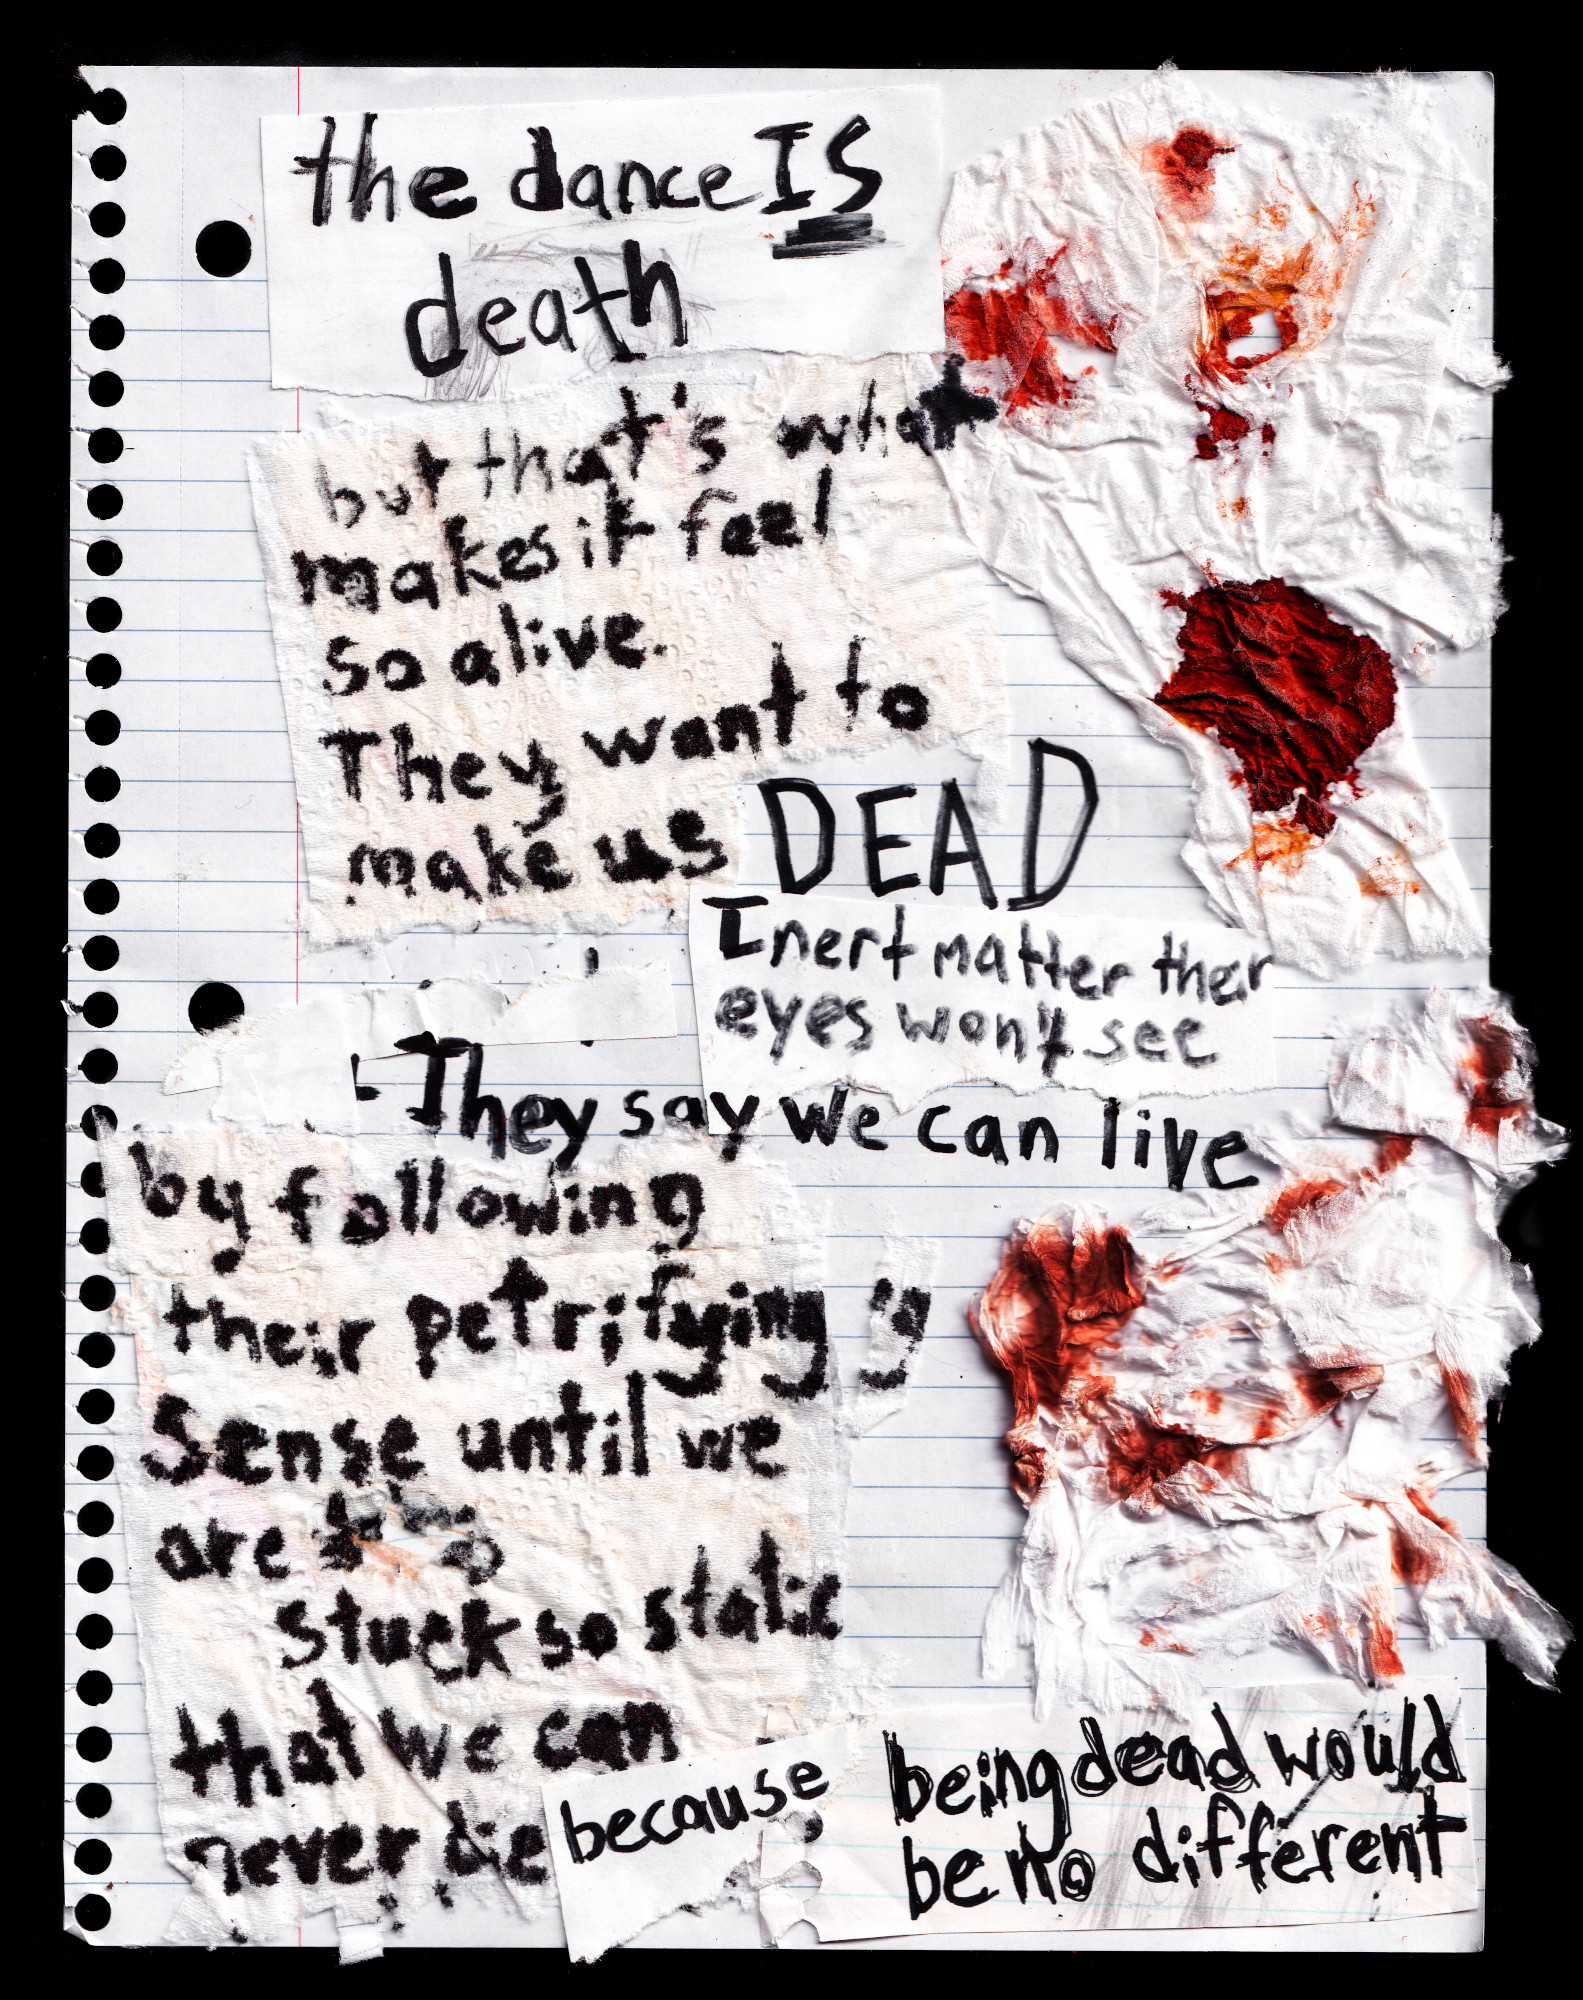 the dance IS
death
but that's what
makes it feel
so alive.
They want to
make us DEAD
Inert matter their
eyes won't see
They say we can live
by following
their petrifying
sense until we
are
stuck so static
that we can
never die because
being dead would
be no different